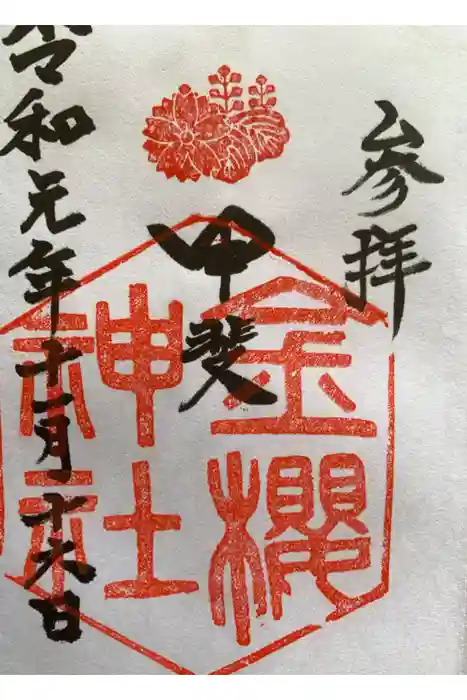 参拝
甲斐
金櫻
神社
令和元年十一月十六日